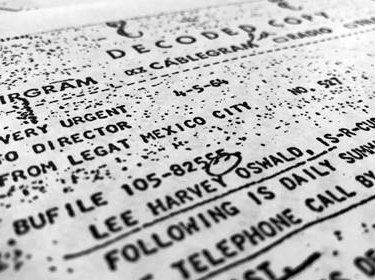 DECODED COPY
CABLEGRAM RADIO
IRGRAM
VERY URGENT 4-5-64
O DIRECTOR
FROM LEGAT MEXICO CITY NO. 527
BUFILE 105-82555
LEE HARVEY OSWALD, IS-R-CU
FOLLOWING IS DAILY SUMM
TELEPHONE CALL BY